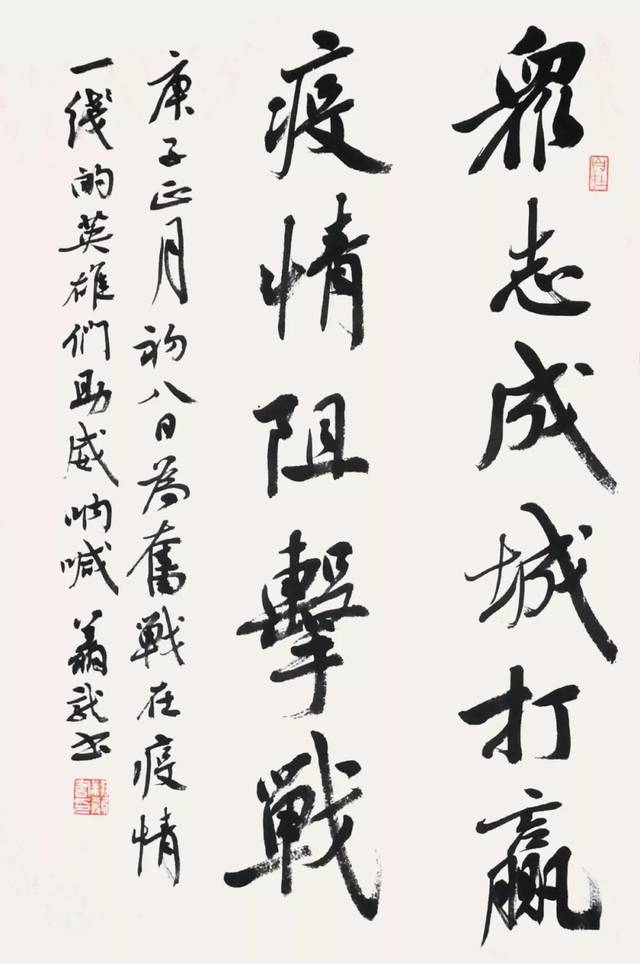 眾志成城打贏
疫情阻擊戰
庚子正月初八日為奮戰在疫情
一綫的英雄們助威吶喊 龍書